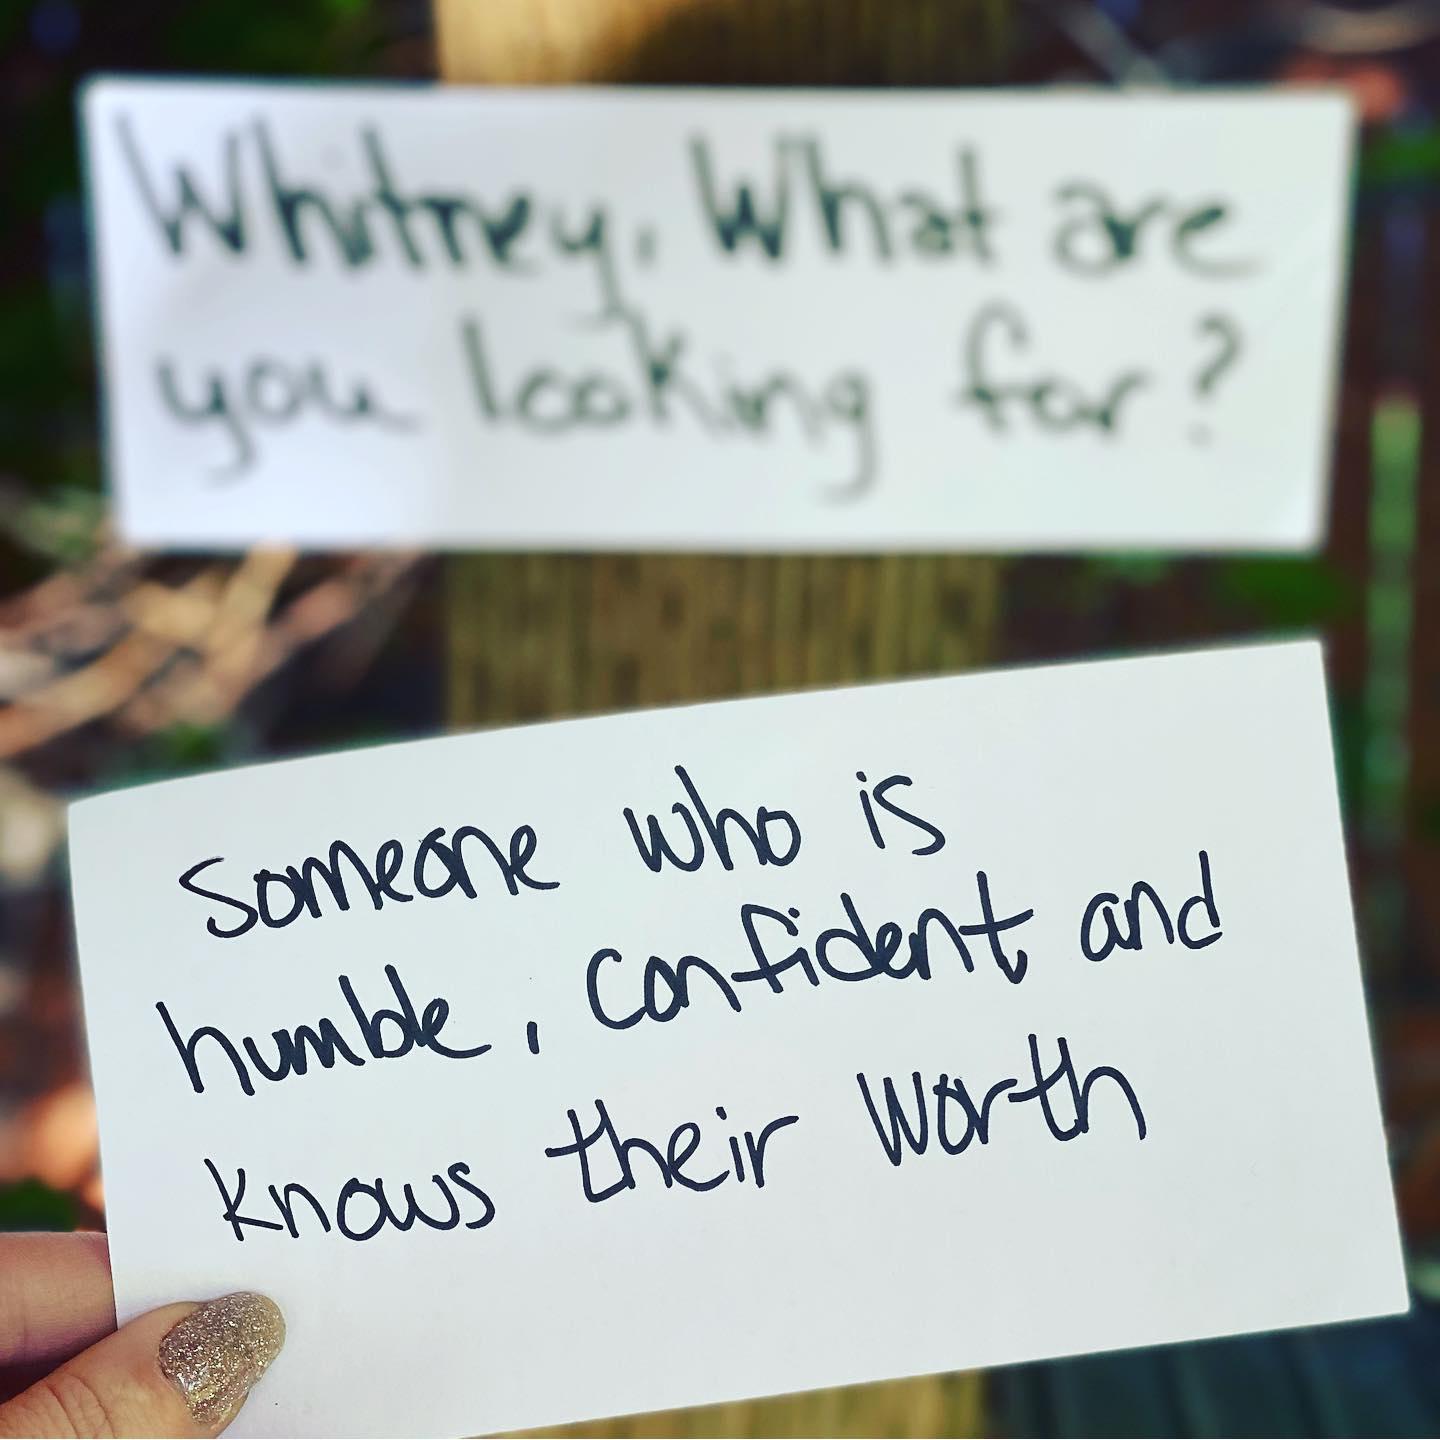 Whitney, What are
you looking for?
Someone who is
humble, confident and
knows their worth